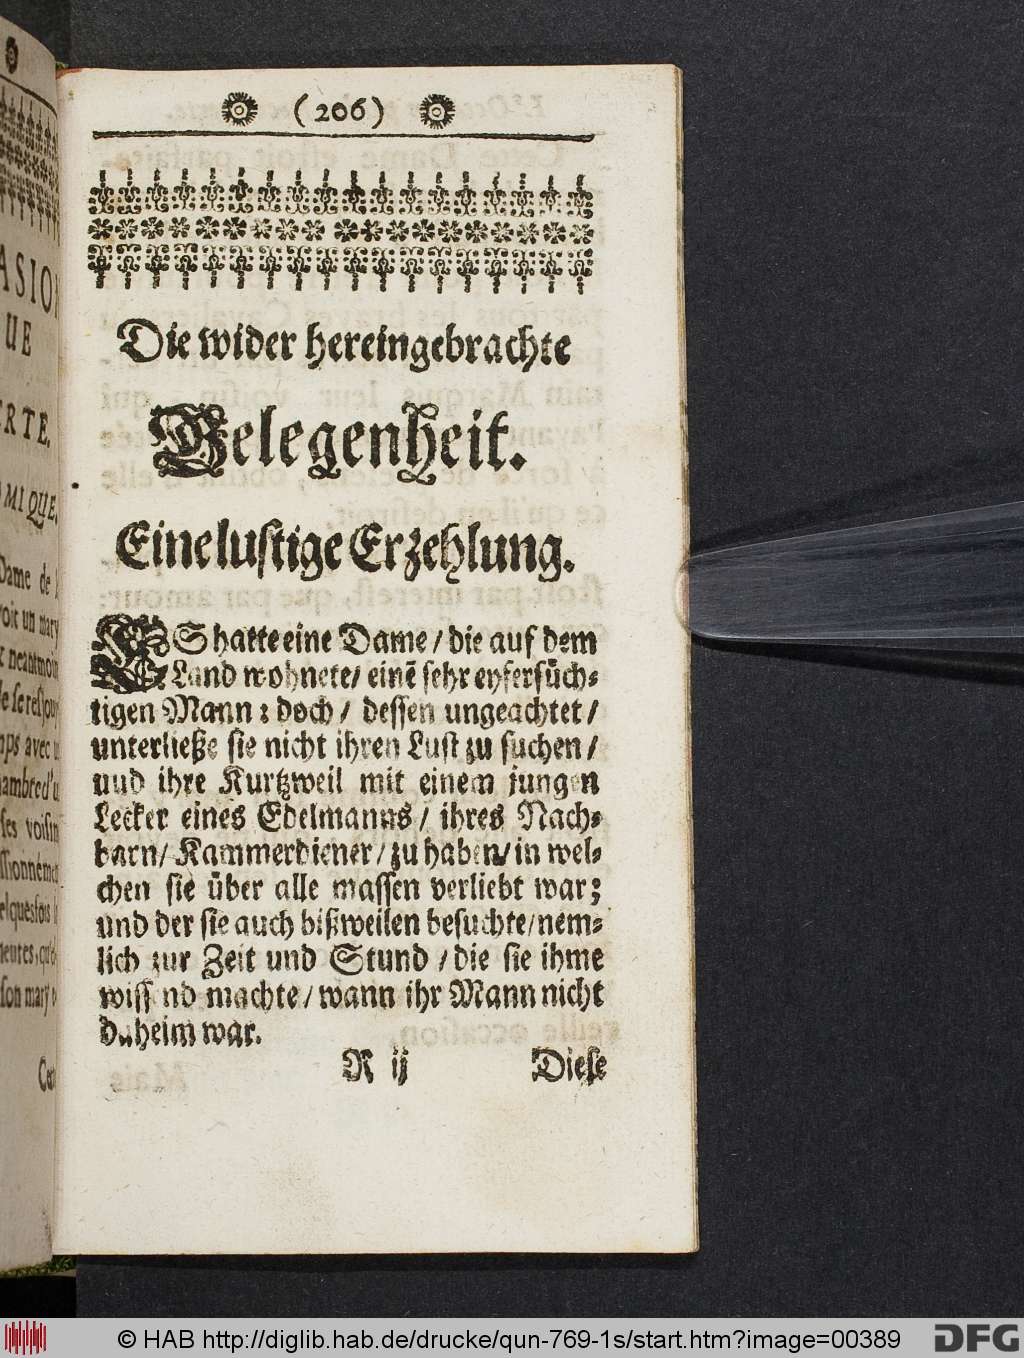 (206)
Die wider hereingebrachte
Gelegenheit.
Eine lustige Erzehlung.
ES hatte eine Dame / die auf dem
Land wohnete / einẽ sehr eyfersüch-
tigen Mann : doch / dessen ungeachtet /
unterließe sie nicht ihren Lust zu suchen /
uud ihre Kurtzweil mit einem jungen
Lecker eines Edelmanns / ihres Nach-
barn / Kammerdiener / zu haben / in wel-
chen sie über alle massen verliebt war;
und der sie auch bißweilen besuchte / nem-
lich zur Zeit und Stund / die sie ihme
wissend machte / wann ihr Mann nicht
daheim war.
R ij Diese
ASION
UE
ERTE.
MIQUE.
Dame de
voit un mary
neantmoin
avec
voisin
son mary
© HAB http://diglib.hab.de/drucke/qun-769-1s/start.htm?image=00389
DFG